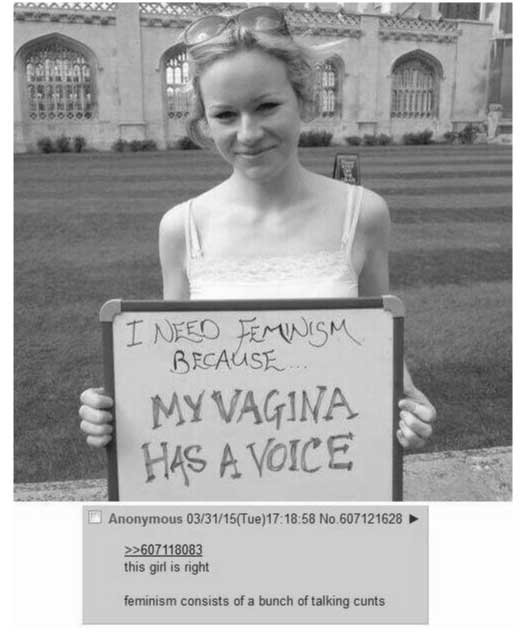 I NEED FEMINISM
BECAUSE...
MY VAGINA
HAS A VOICE
Anonymous 03/31/15(Tue)17:18:58 No.607121628 ▶
>>607118083
this girl is right
feminism consists of a bunch of talking cunts